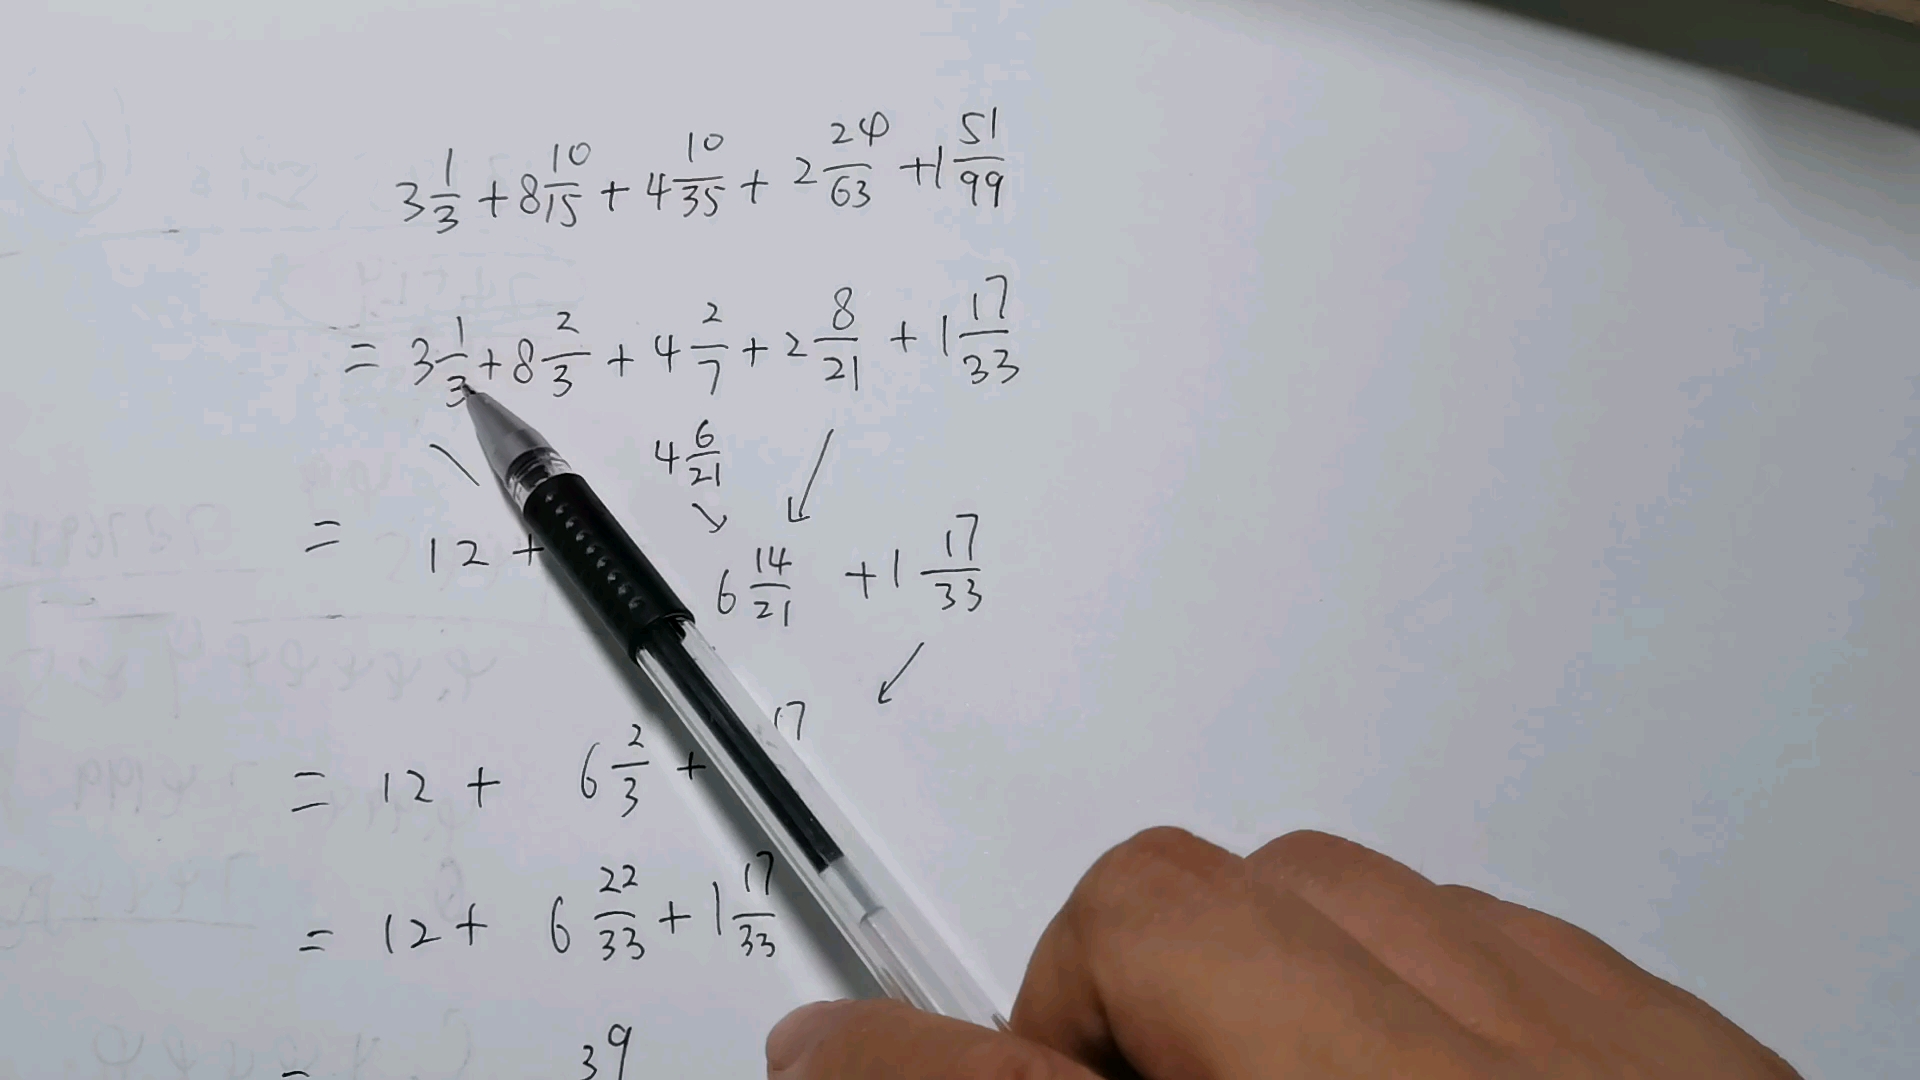 3 1/3 + 8 10/15 + 4 10/35 + 2 24/63 + 1 51/99
= 3 1/3 + 8 2/3 + 4 2/7 + 2 8/21 + 1 17/33
4 6/21
= 12 + 6 14/21 + 1 17/33
= 12 + 6 2/3 + 17
= 12 + 6 22/33 + 1 17/33
= 39